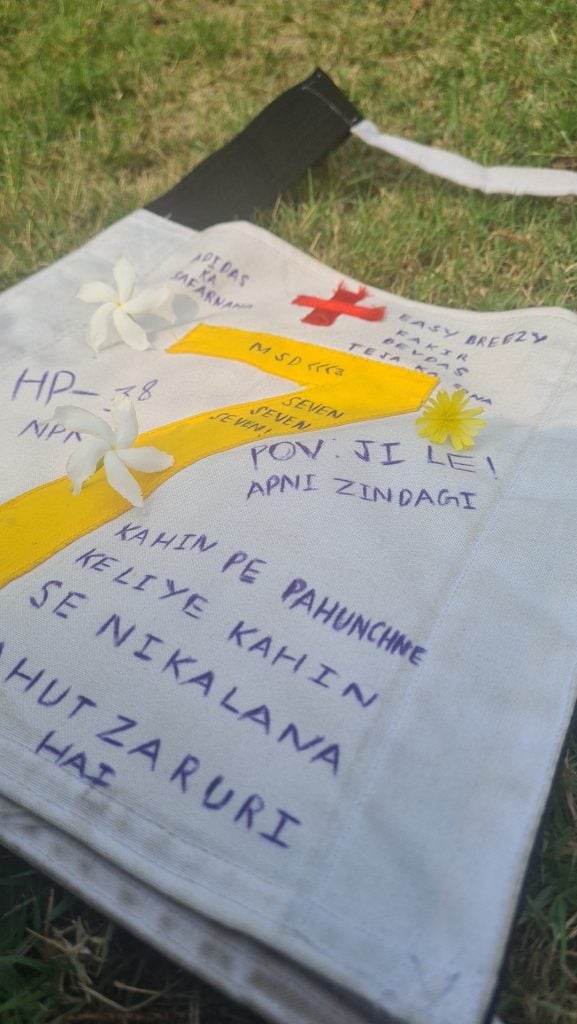 ADIDAS
KA
SAFARNAMA
EASY BREEZY
FAKIR
DEVDAS
TEJA KA
MSD <<<3
SEVEN
SEVEN
SEVEN!
HP-18
POV: JI LE!
APNI ZINDAGI
KAHIN PE PAHUNCHNE
KELIYE KAHIN
SE NIKALANA
AHUT ZARURI
HAI